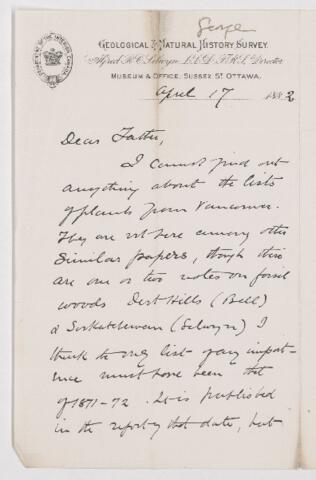 George
GEOLOGICAL & NATURAL HISTORY SURVEY.
Alfred R. C. Selwyn. L.L.D. F.R.S. Director
MUSEUM & OFFICE, SUSSEX ST. OTTAWA.
April 17 1882
Dear Father,
I cannot find out
anything about the lists
of plants from Vancouver.
They are not here among other
similar papers, though there
are one or two notes on fossil
woods Dirt Hills (Bell)
& Saskatchewan (Selwyn) I
think the only list of any import-
ance must have been that
of 1871-72. It is published
in the report of that date, but